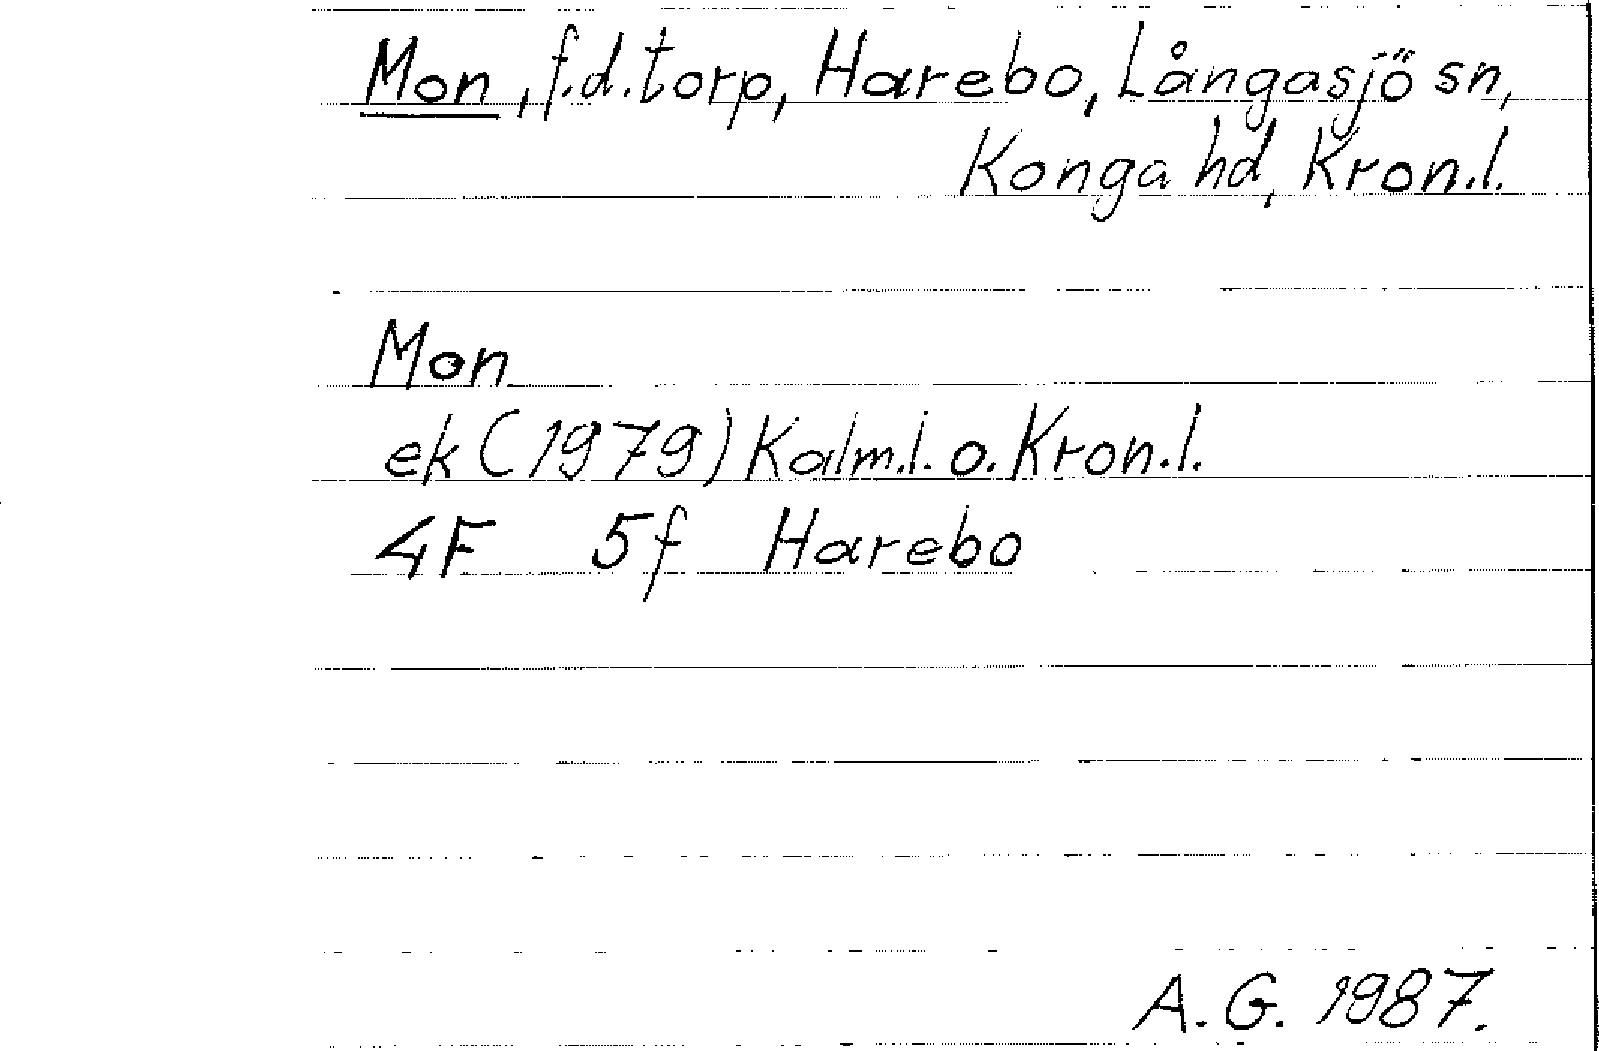 Mon, f.d. torp, Harebo, Långasjö sn,
Konga hd, Kron.l.
Mon
ek (1979) Kalm.l. o. Kron.l.
4F 5f Harebo
A.G. 1987.